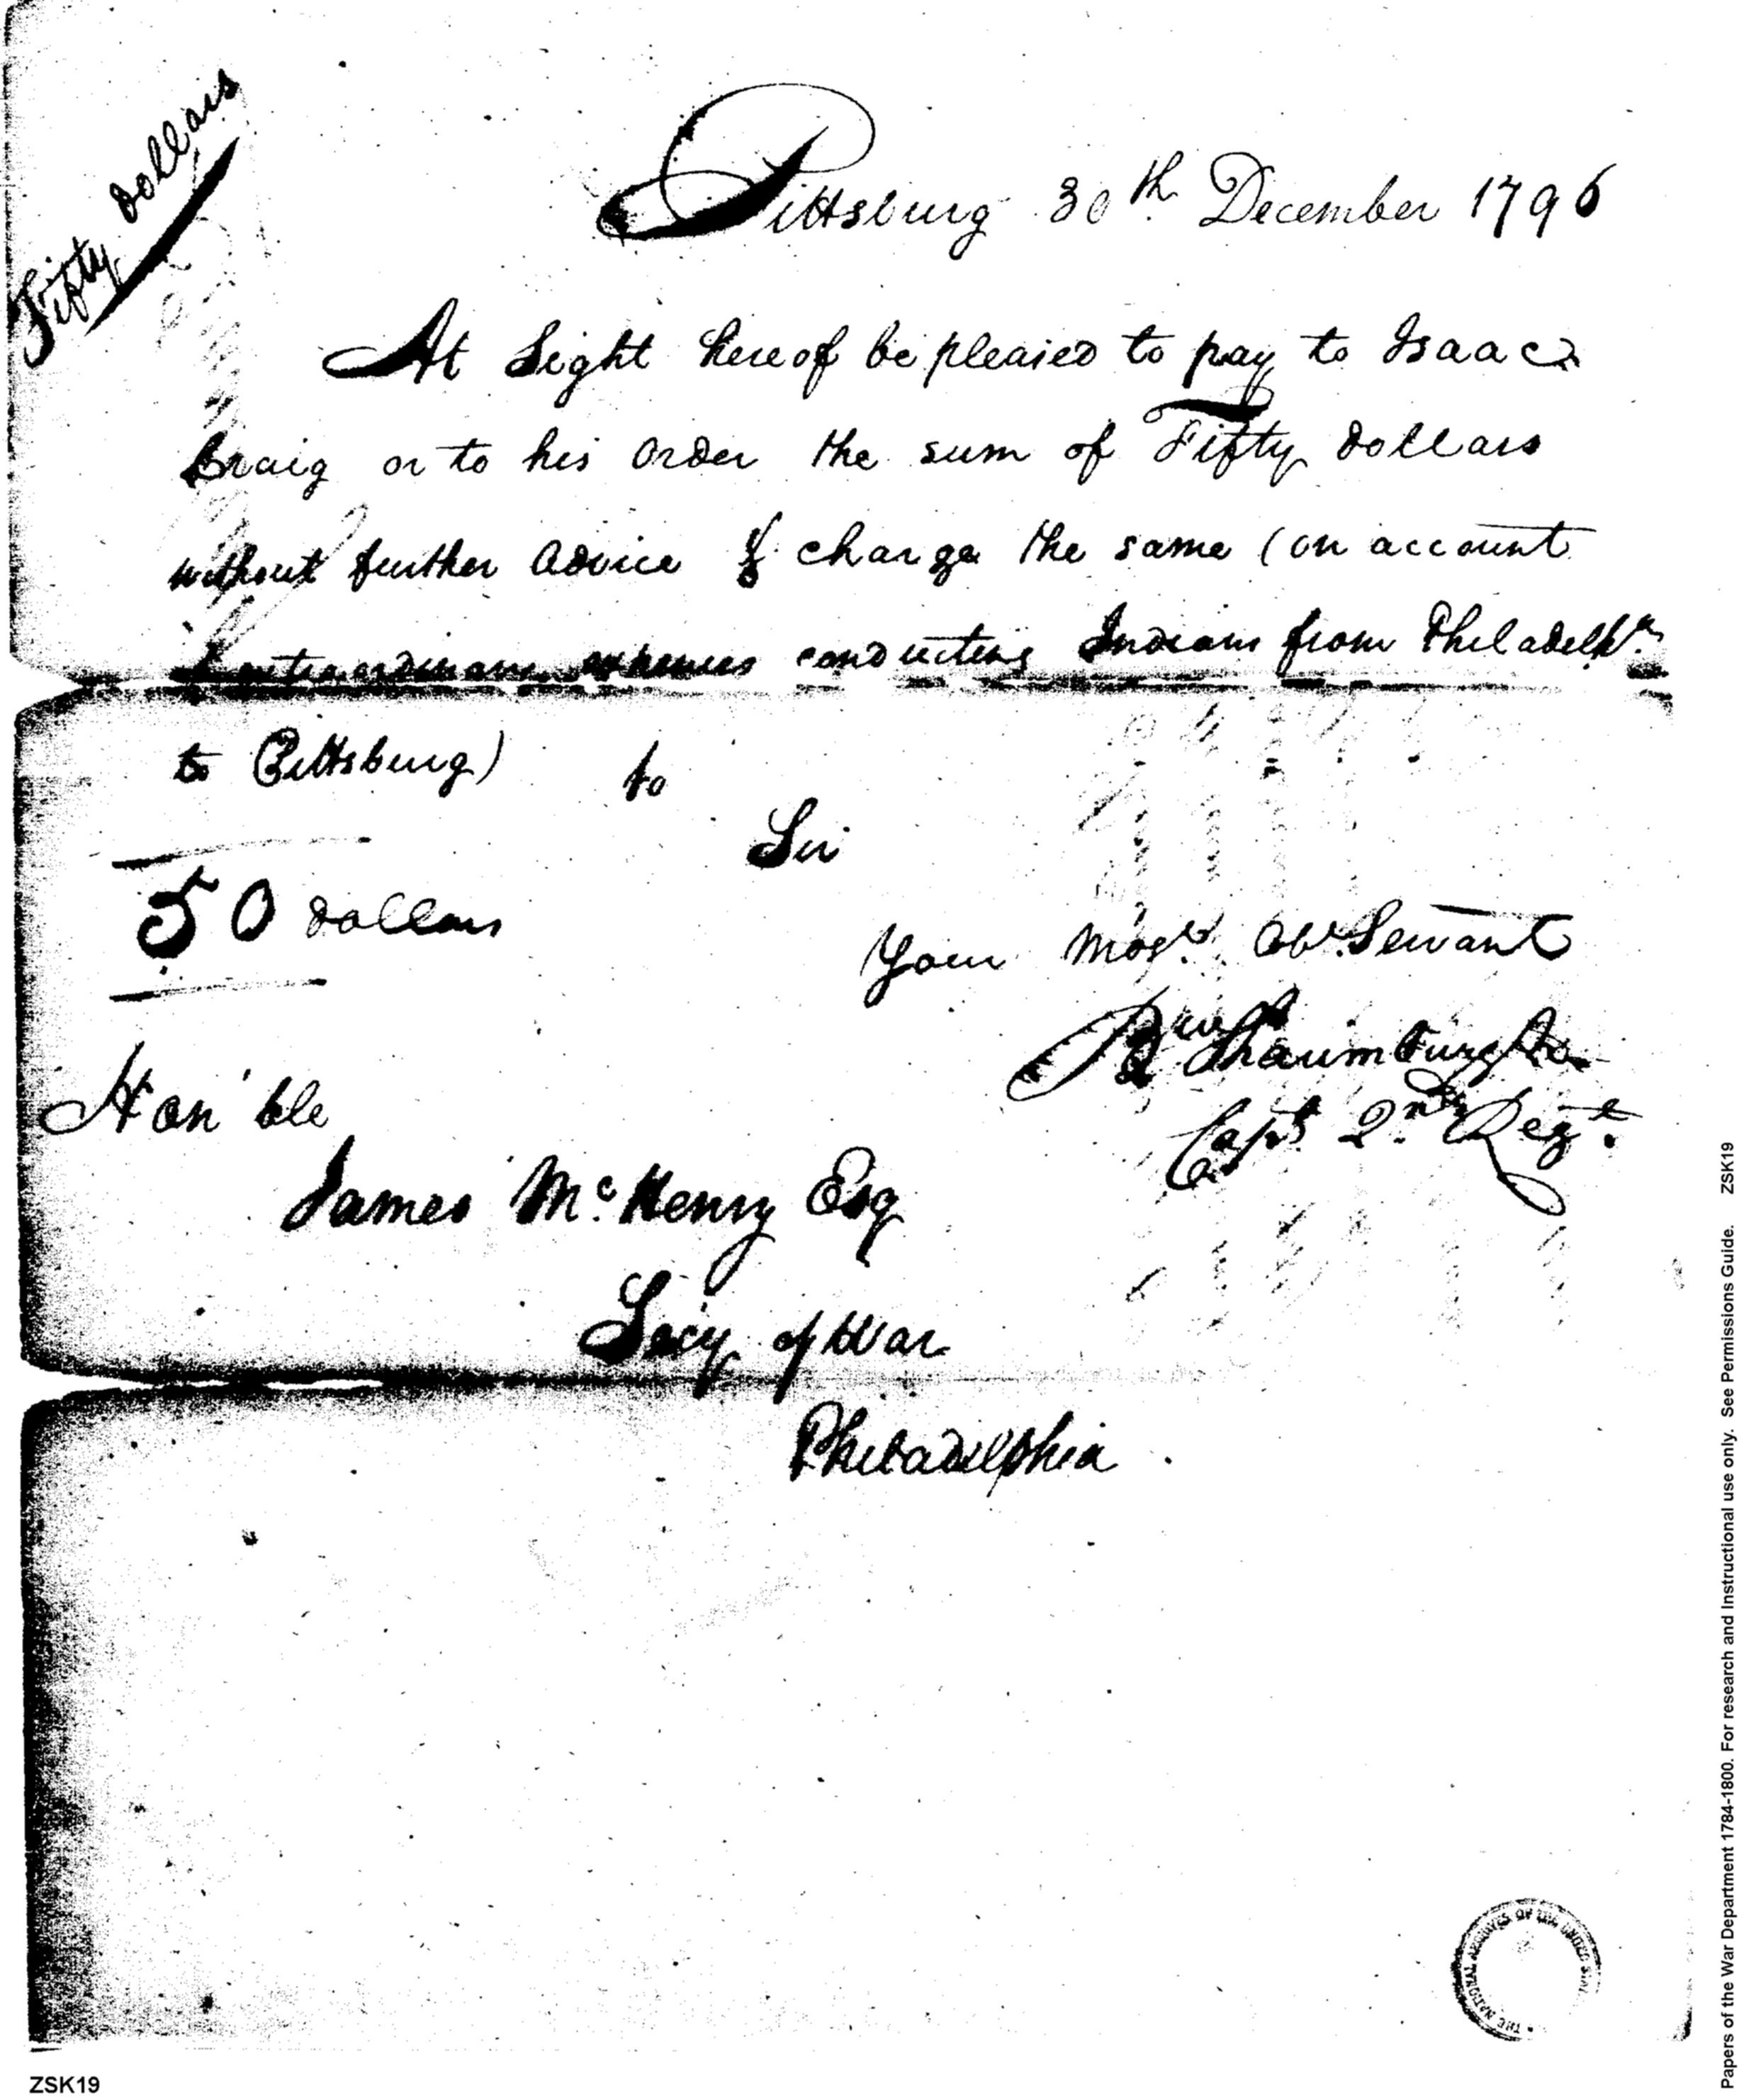 Fifty dollars
Pittsburg 30th December 1796
At Sight hereof be pleased to pay to Isaac
Craig or to his order the sum of Fifty dollars
without further advice & charge the same (on account
of extraordinary expences conducting Indians from Philadelpa.
to Pittsburg) to
Sir
50 dollars
Your Most. Obt. Servant
Bw Shaumburgh
Capt 2nd Regt.
Hon'ble
James Mc.Henry Esq
Secy of War
Philadelphia.
THE NATIONAL ARCHIVES OF THE UNITED
ZSK19
Papers of the War Department 1784-1800. For research and Instructional use only. See Permissions Guide. ZSK19